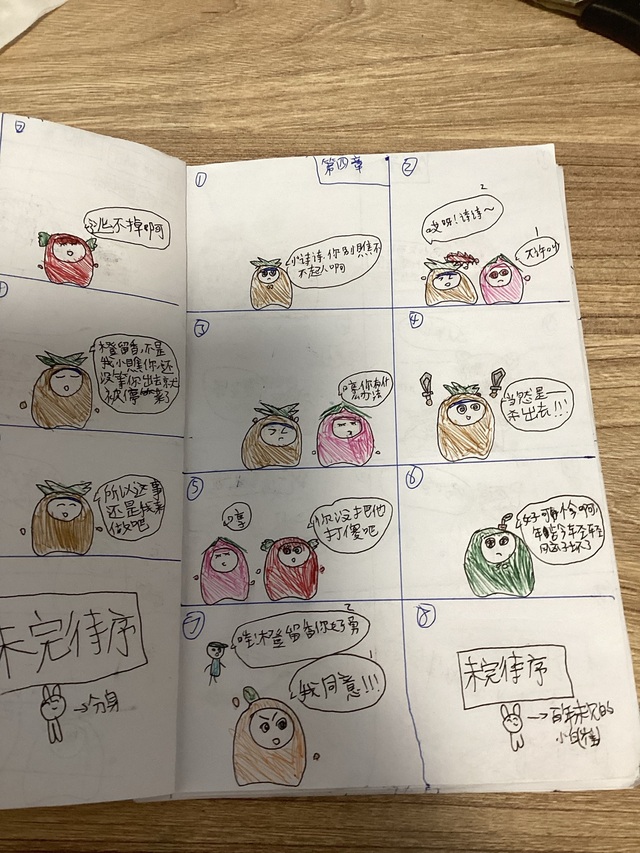 ②
逃不掉啊
橙留香,不是
我小瞧你,还
没拿你出去就
被俘来了
所以这事
还是我来
做吧
未完待序
→分身
第四章
①
小诗诗,你别瞧不
不起人啊
②
2
哎呀!诗诗~
1
不许叫
③
哼你有什
么办法
④
当然是
杀出去!!!
⑤
哼
你没把他
打傻吧
⑥
好可怜啊
年
⑦
2
哇!橙留香你好勇
1
我同意!!!
⑧
未完待序
→百年未见的
小